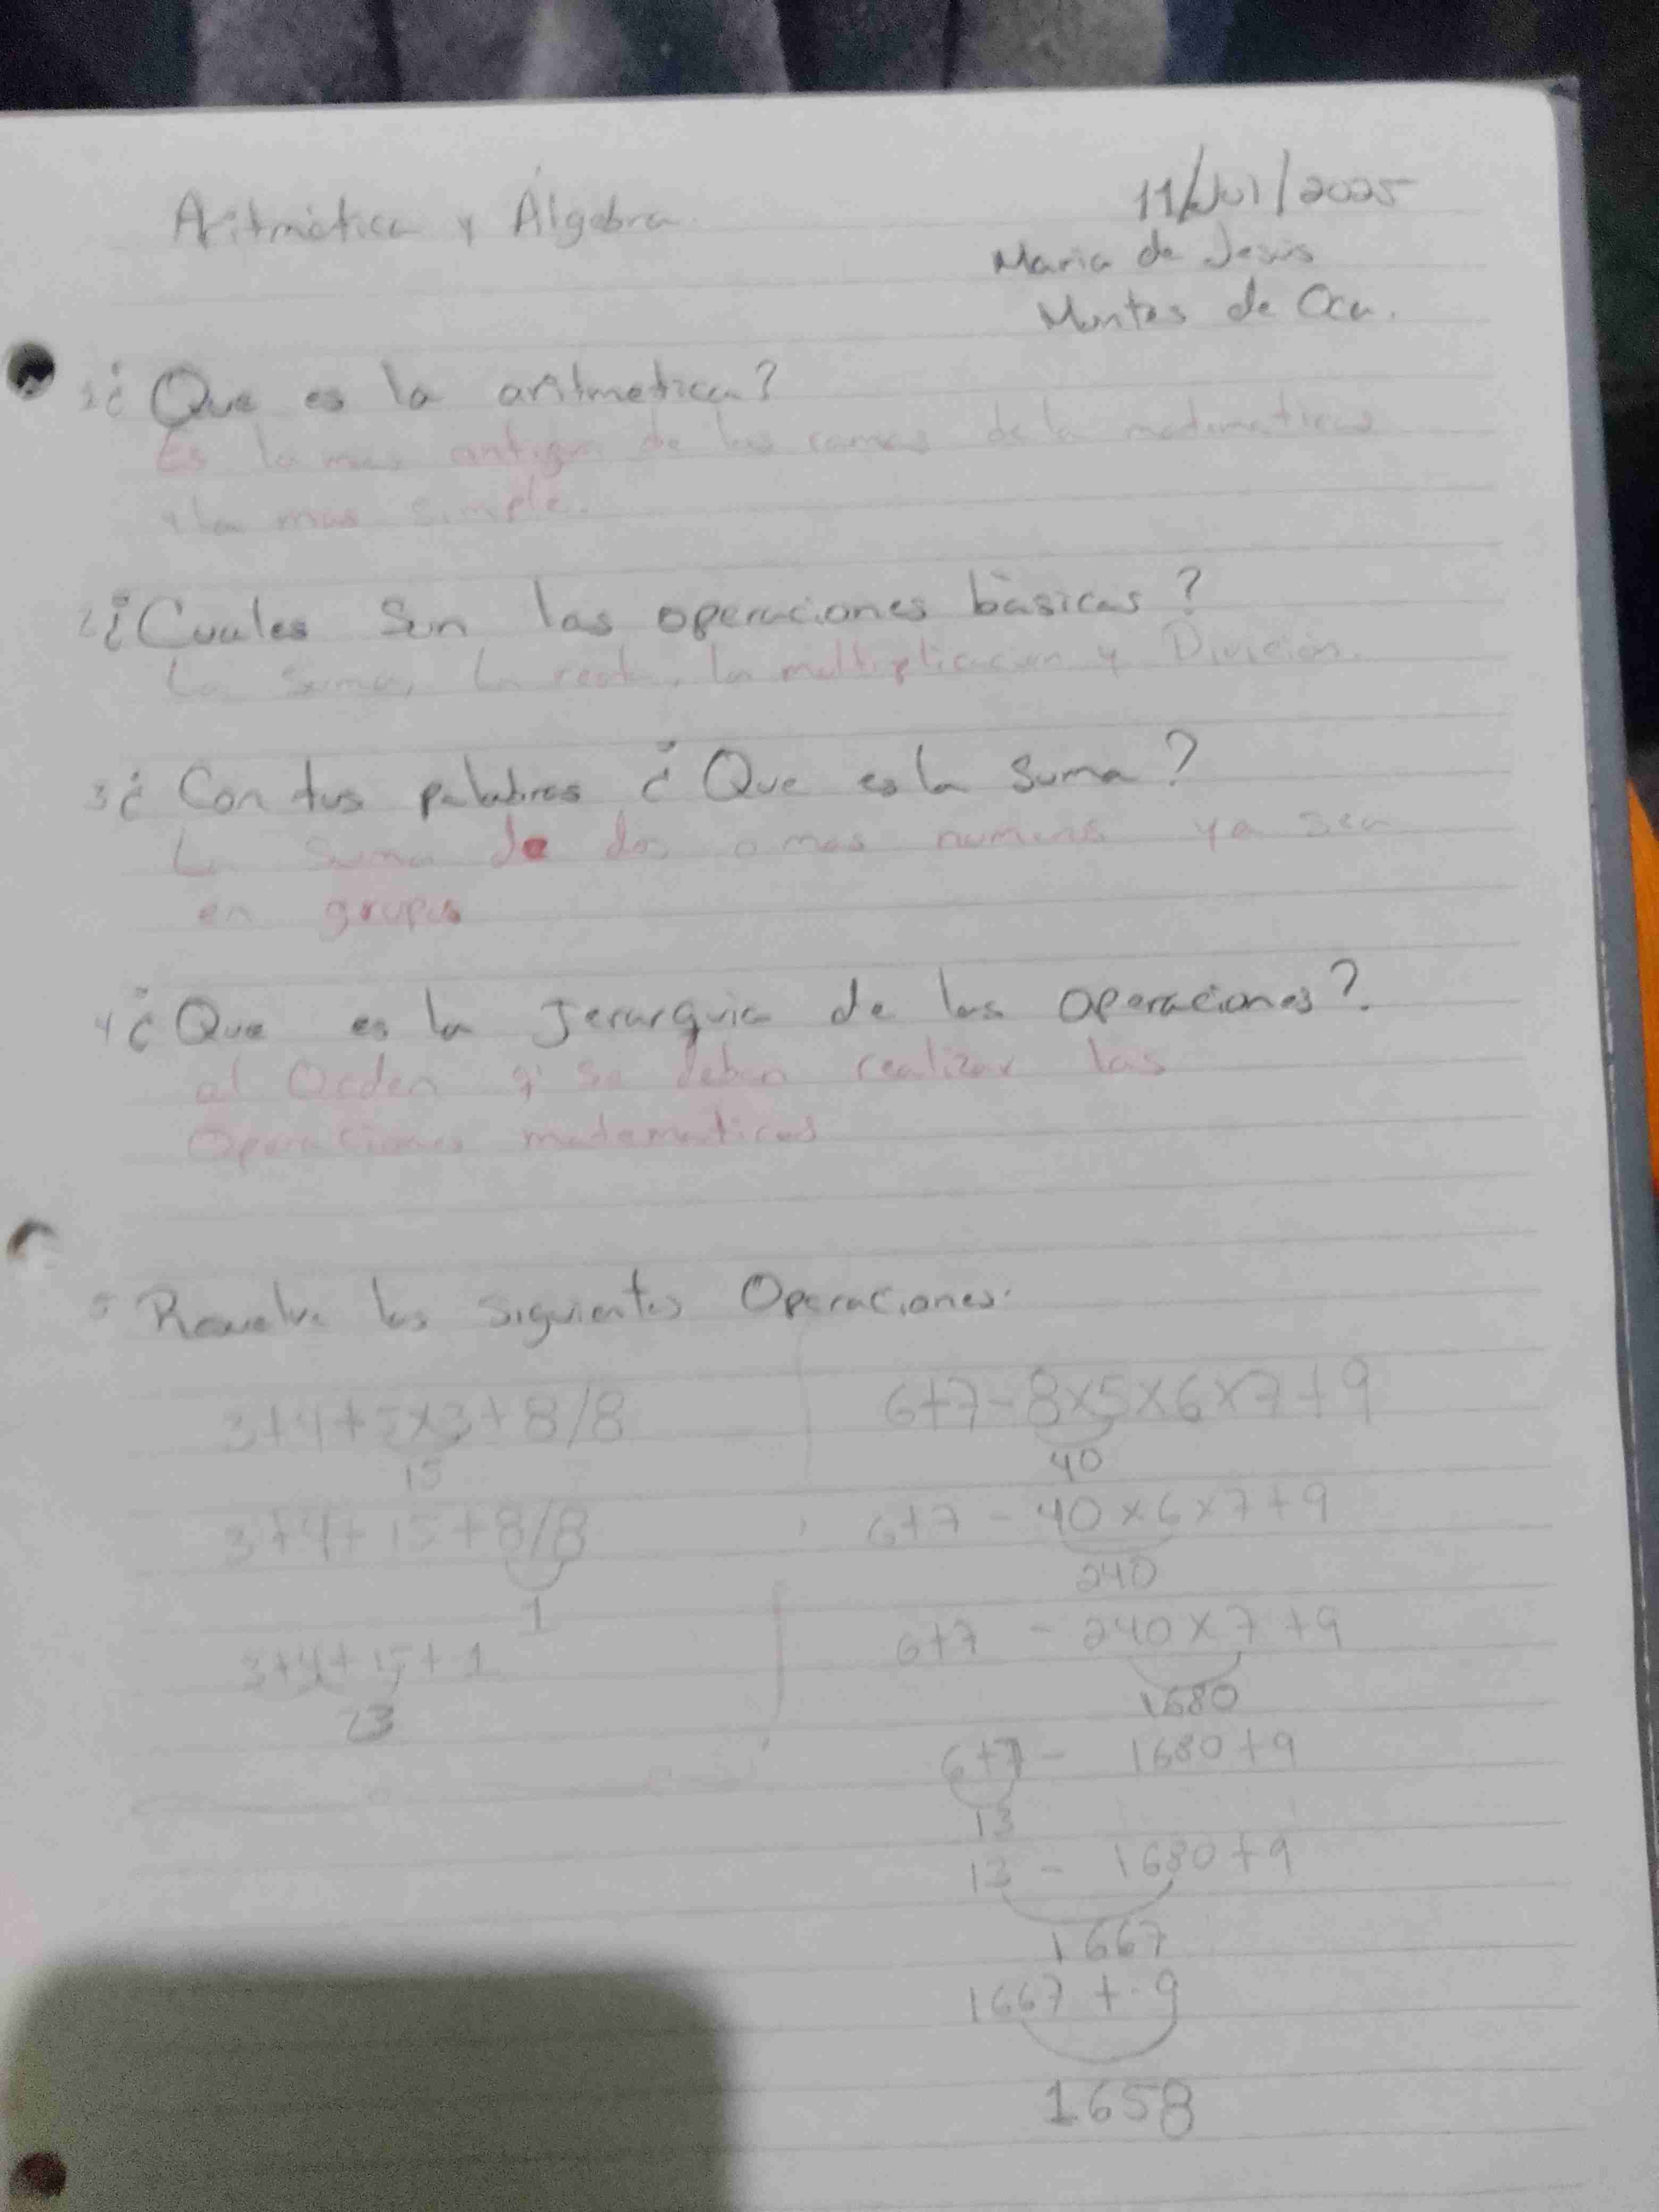 Aritmética y Álgebra
11/Jul/2025
Maria de Jesús
Montes de Oca.
1¿ Que es la aritmetica?
Es la mas antigua de las ramas de la matematicas
y la mas simple.
2¿Cuales Son las operaciones básicas?
La Suma, La resta, la multiplicacion y División.
3¿ Con tus palabras ¿Que es la Suma?
La Suma de dos o mas numeros ya sea
en grupos
4¿Que es la Jerarquia de las Operaciones?.
el Orden q' se deben realizar las
Operaciones matematicas
5 Resuelve las siguientes Operaciones:
3+4+5x3+8/8
15
3+4+15+8/8
1
3+4+15+1
23
6+7-8x5x6x7+9
40
6+7-40x6x7+9
240
6+7 - 240x7+9
1680
6+7- 1680+9
13
13 - 1680+9
1667
1667 + -9
1658